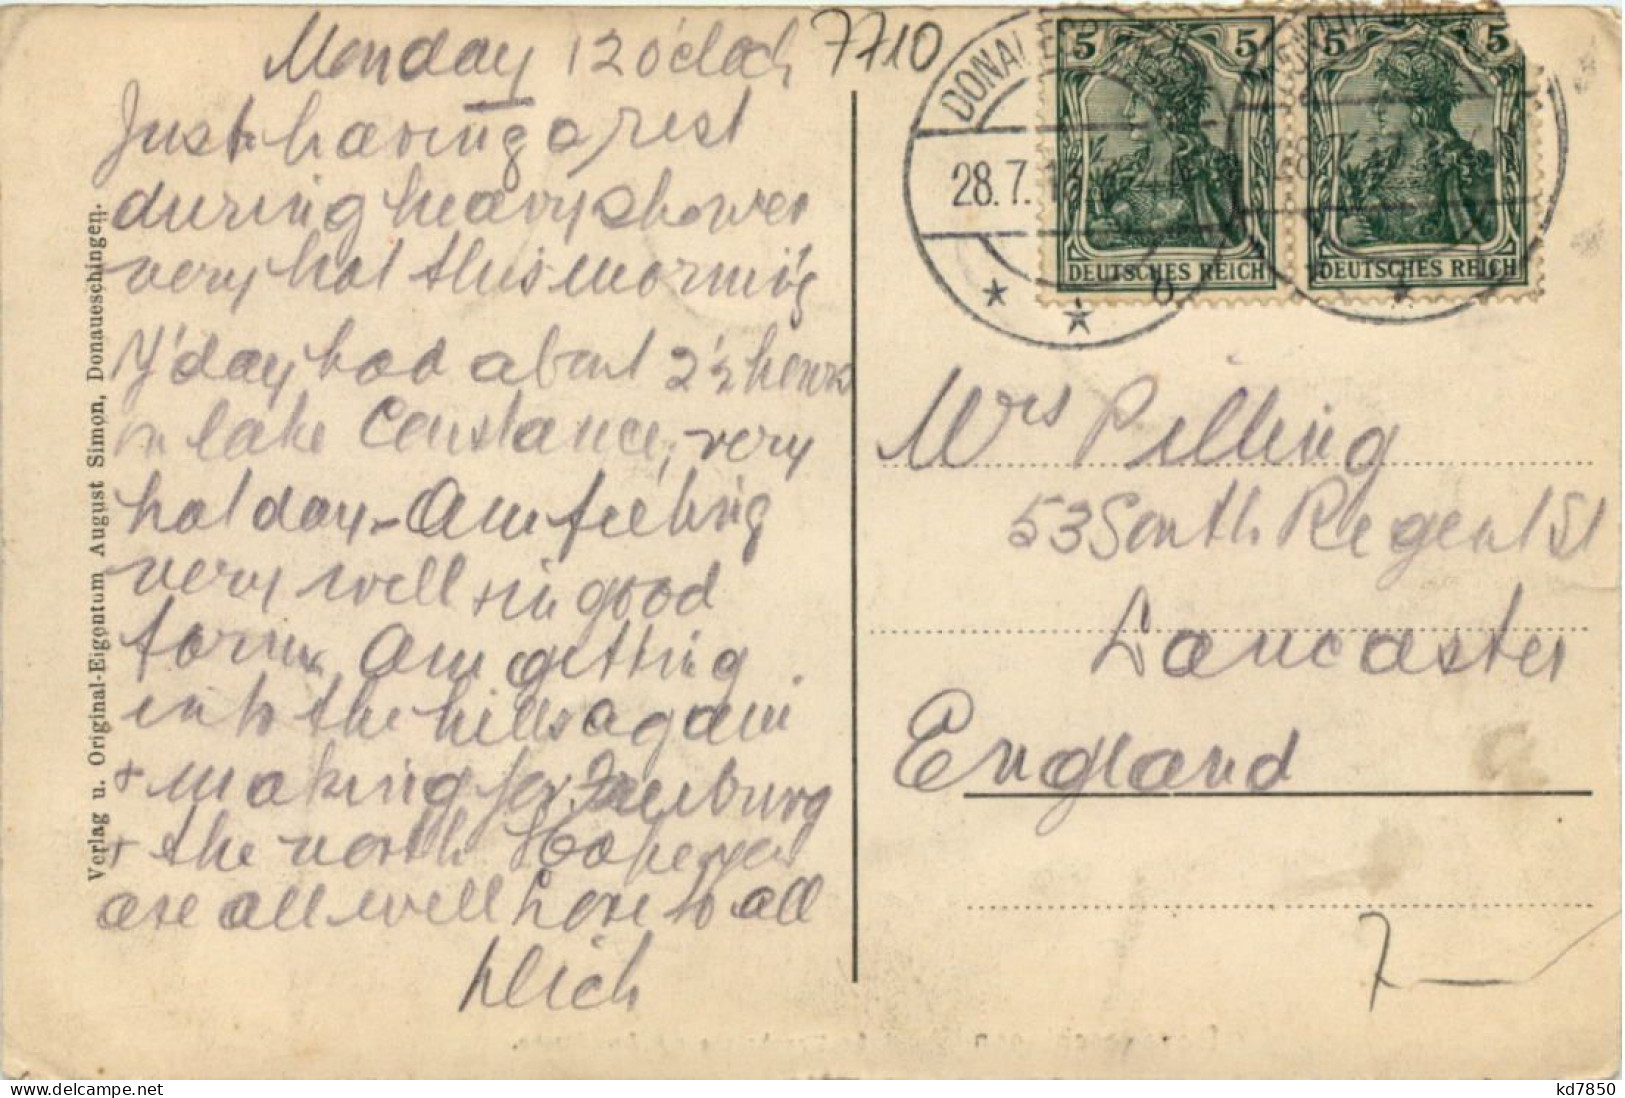 Monday 12 o'clock
Just having a rest
during heavy shower
very hot this morning
Y'day had about 2½ hours
in lake Constance, very
hot day - Am feeling
very well + in good
form. Am getting
into the hills again
+ making for Freiburg
+ the north Hope you
are all well Love to all
7710
Mrs Pilling
53 South Regent St
Lancaster
England
7
DONAUESCHINGEN
28.7.13
5 5
DEUTSCHES REICH
5 5
DEUTSCHES REICH
Verlag u. Original-Eigentum August Simon, Donaueschingen.
kd7850